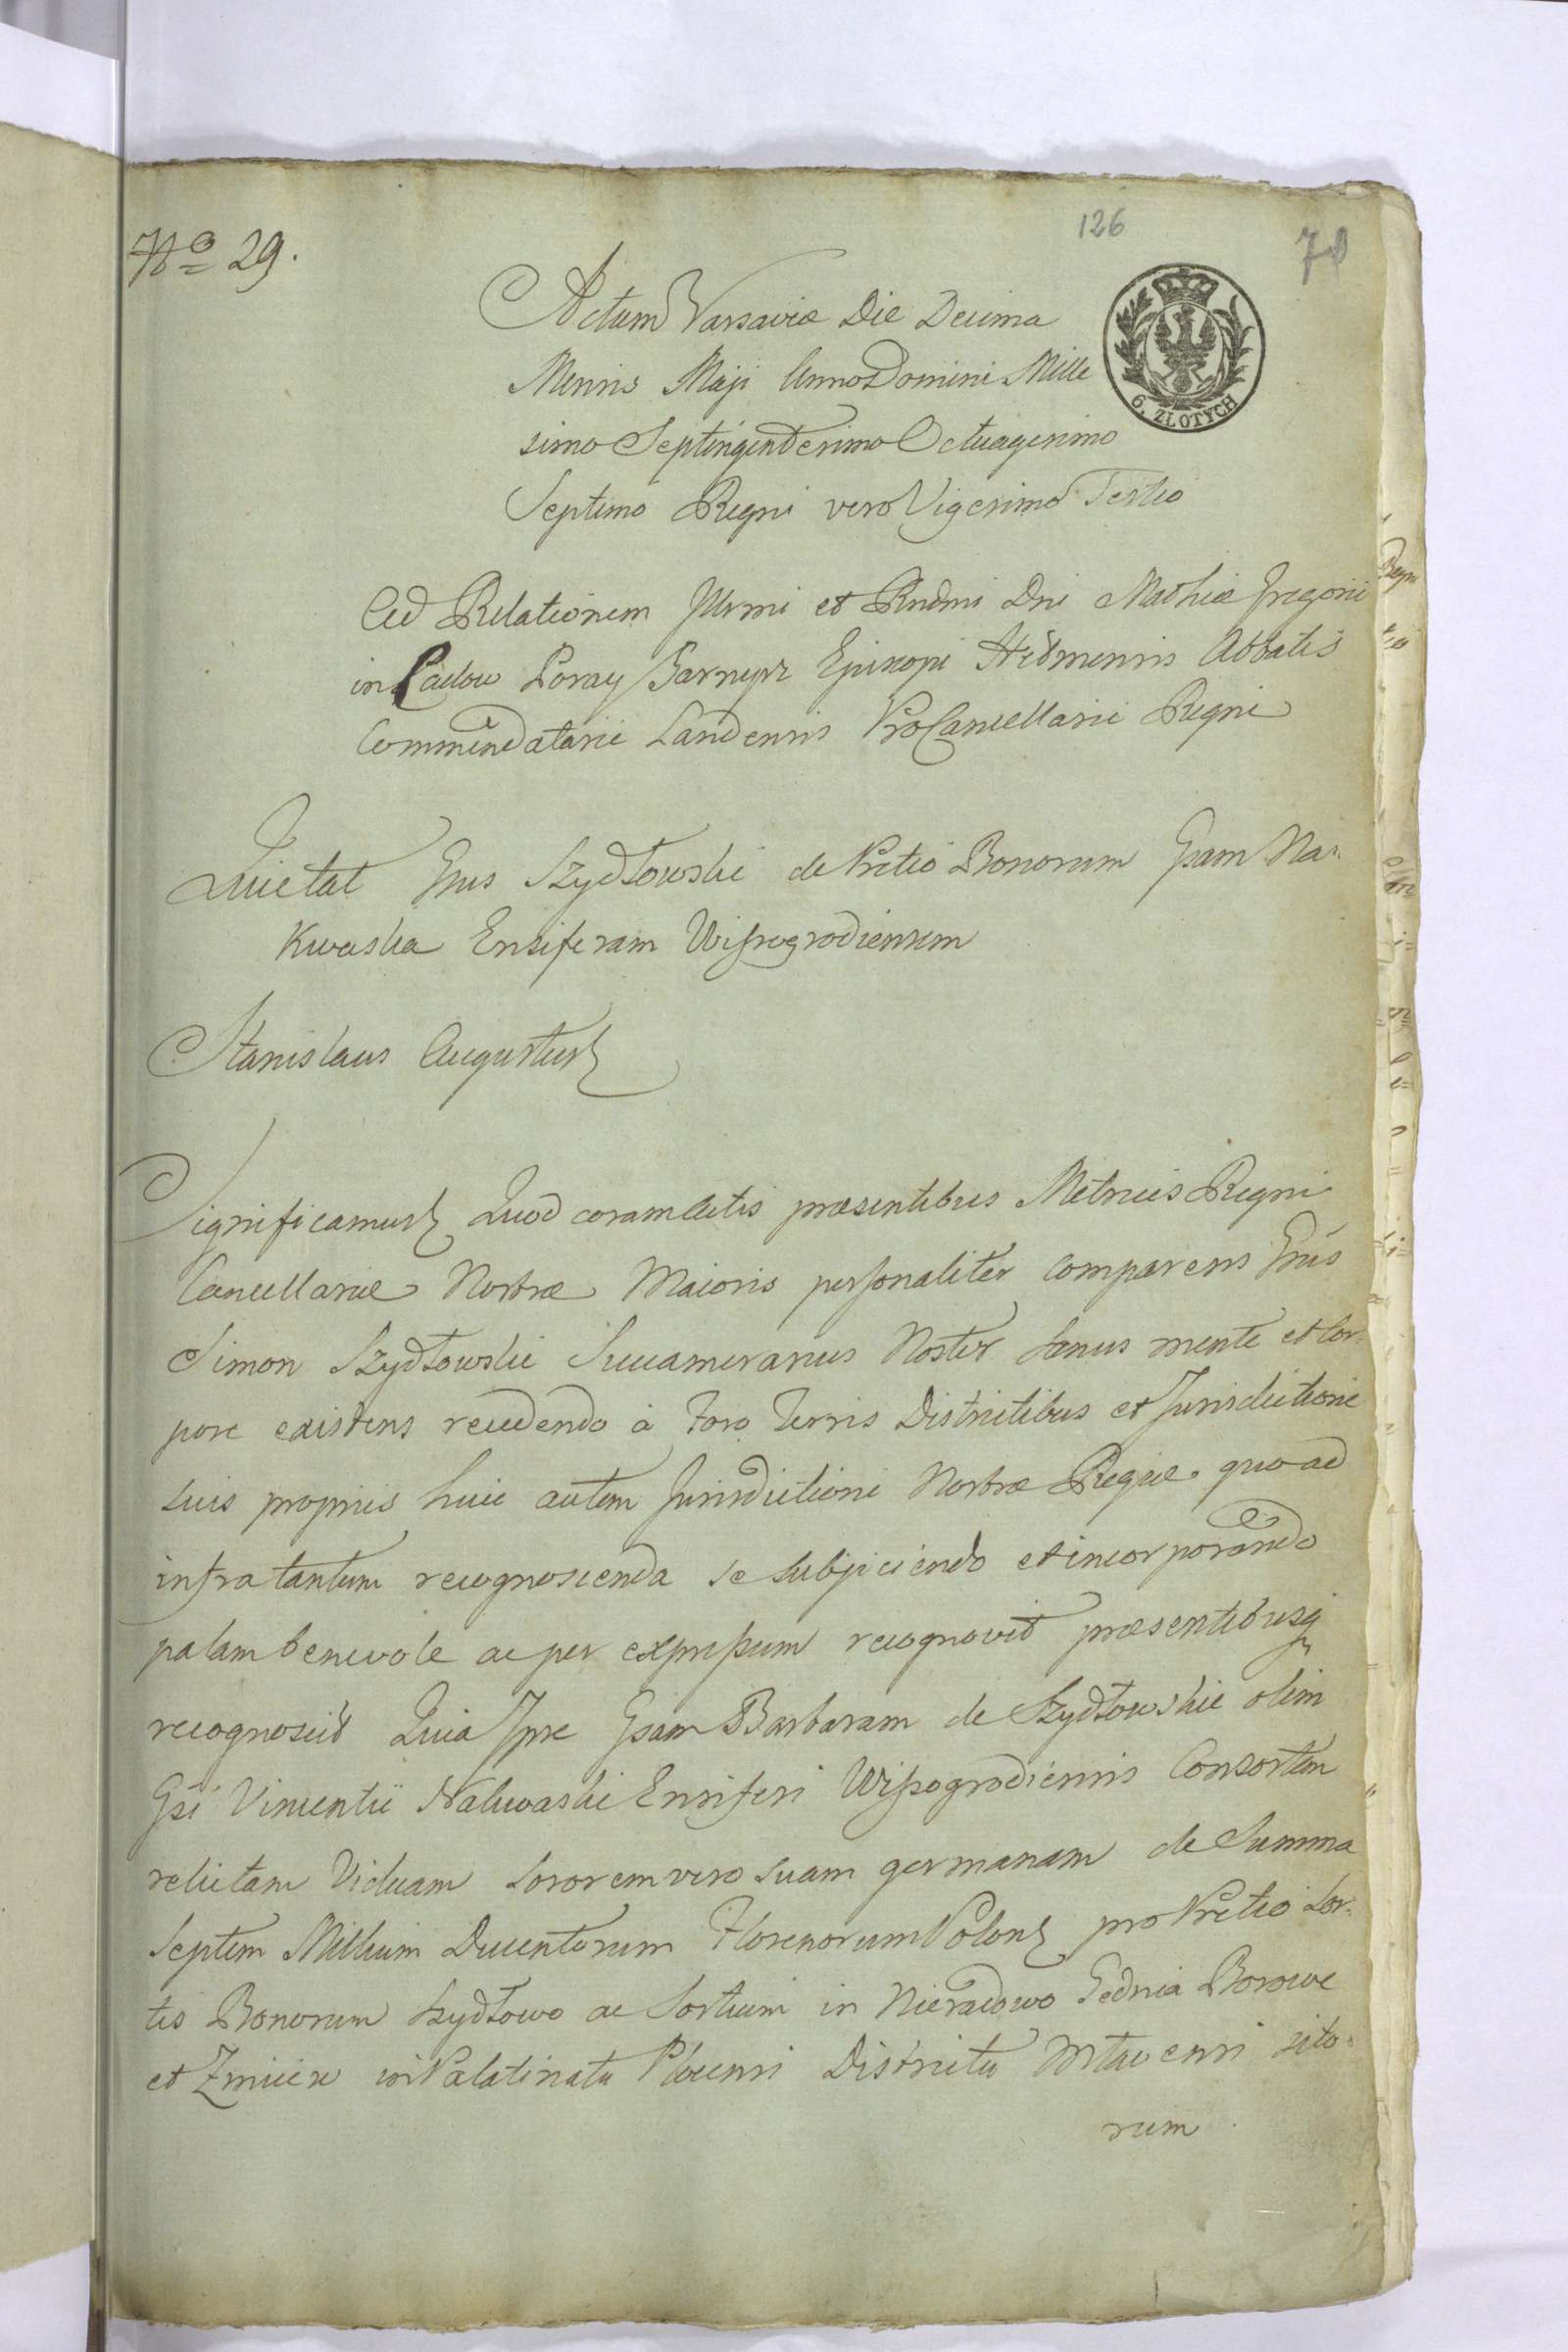 126
78
No 29.
Actum Varsaviæ Die Decima
Mensis Maji Anno Domini Mille
simo Septingentesimo Octuagesimo
Septimo Regni vero Vigesimo Tertio
6. ZŁOTYCH
Ad Relationem Illrmi et Rndmi Dni Mathiæ Gregorii
in Poray Garnysz Episcopi Abbatis
Commendatarii Landensis ProCancellarii Regni
Quietat Gnus Szydłowski de Pretio Bonorum Gsam Na-
kwaska Ensiferam Wissogrodiensem
Stanislaus Augustus
Significamus Quod coram Actis præsentibus Metrices Regni
Cancellariæ Nostræ Maioris personaliter comparens Gnus
Simon Szydłowski Succamerarius Noster sanus mente et Cor-
pore existens recedendo à Foro Terris Districtibus et Jurisdictione
suis propriis huic autem Jurisdictioni Nostræ Regiæ quo ad
infra tantum recognoscenda se subjiciendo et incorporando
palam benevole ac per expressum recognovit præsentibusq
recognoscit Quia Ipse Gsam Barbaram de Szydłowskie olim
Gsi Vincentii Nakwaski Ensiferi Wissogrodiensis Consortem
relictam Viduam sororem vero suam germanam de Summa
Septem Millium Ducentorum Florenorum Polon pro Pretio Sor-
tis Bonorum Szydłowo ac Sortium in Nieradowo Borowe
et in Palatinatu Plocensi Districtu Mławensi sito-
rum